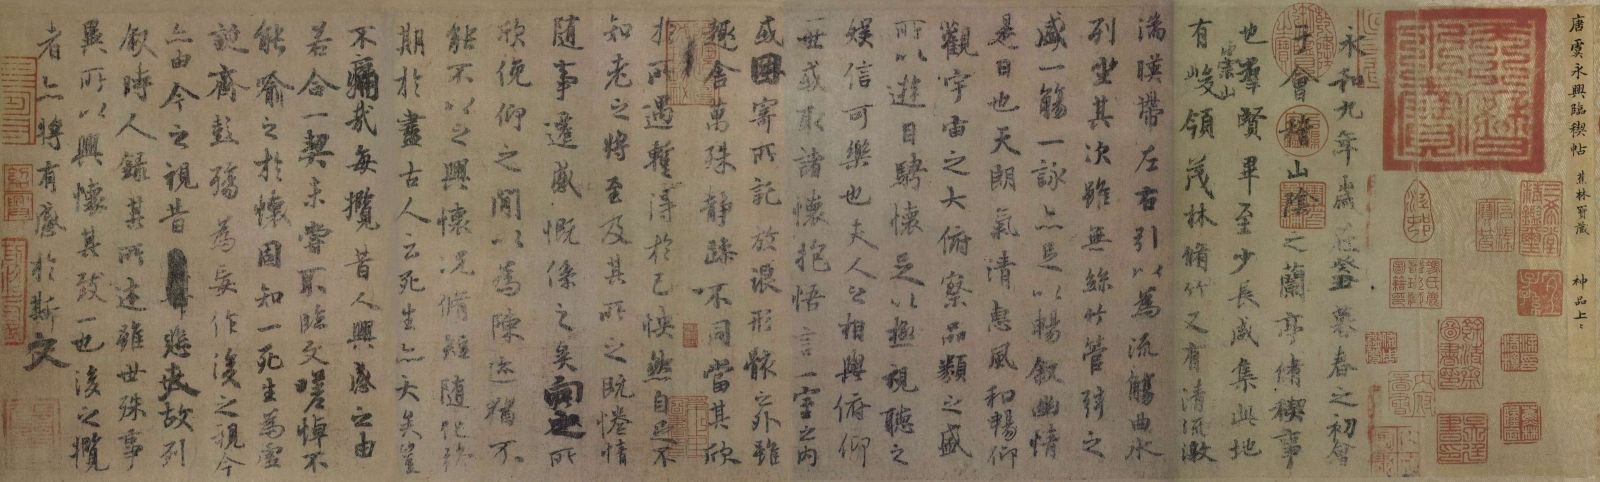 唐虞永興臨禊帖 蕉林寶藏 神品上上
永和九年歲在癸丑暮春之初會
于會稽山陰之蘭亭脩禊事
也羣賢畢至少長咸集此地
有崇山峻領茂林脩竹又有清流激
湍暎帶左右引以為流觴曲水
列坐其次雖無絲竹管弦之
盛一觴一詠亦足以暢敘幽情
是日也天朗氣清惠風和暢仰
觀宇宙之大俯察品類之盛
所以遊目騁懷足以極視聽之
娛信可樂也夫人之相與俯仰
一世或取諸懷抱悟言一室之內
或因寄所託放浪形骸之外雖
趣舍萬殊靜躁不同當其欣
於所遇暫得於己怏然自足不
知老之將至及其所之既惓情
隨事遷感慨係之矣向之所
欣俛仰之閒以為陳迹猶不
能不以之興懷況脩短隨化終
期於盡古人云死生亦大矣豈
不痛哉每攬昔人興感之由
若合一契未嘗不臨文嗟悼不
能喻之於懷固知一死生為虛
誕齊彭殤為妄作後之視今
亦由今之視昔悲夫故列
敘時人錄其所述雖世殊事
異所以興懷其致一也後之攬
者亦將有感於斯文